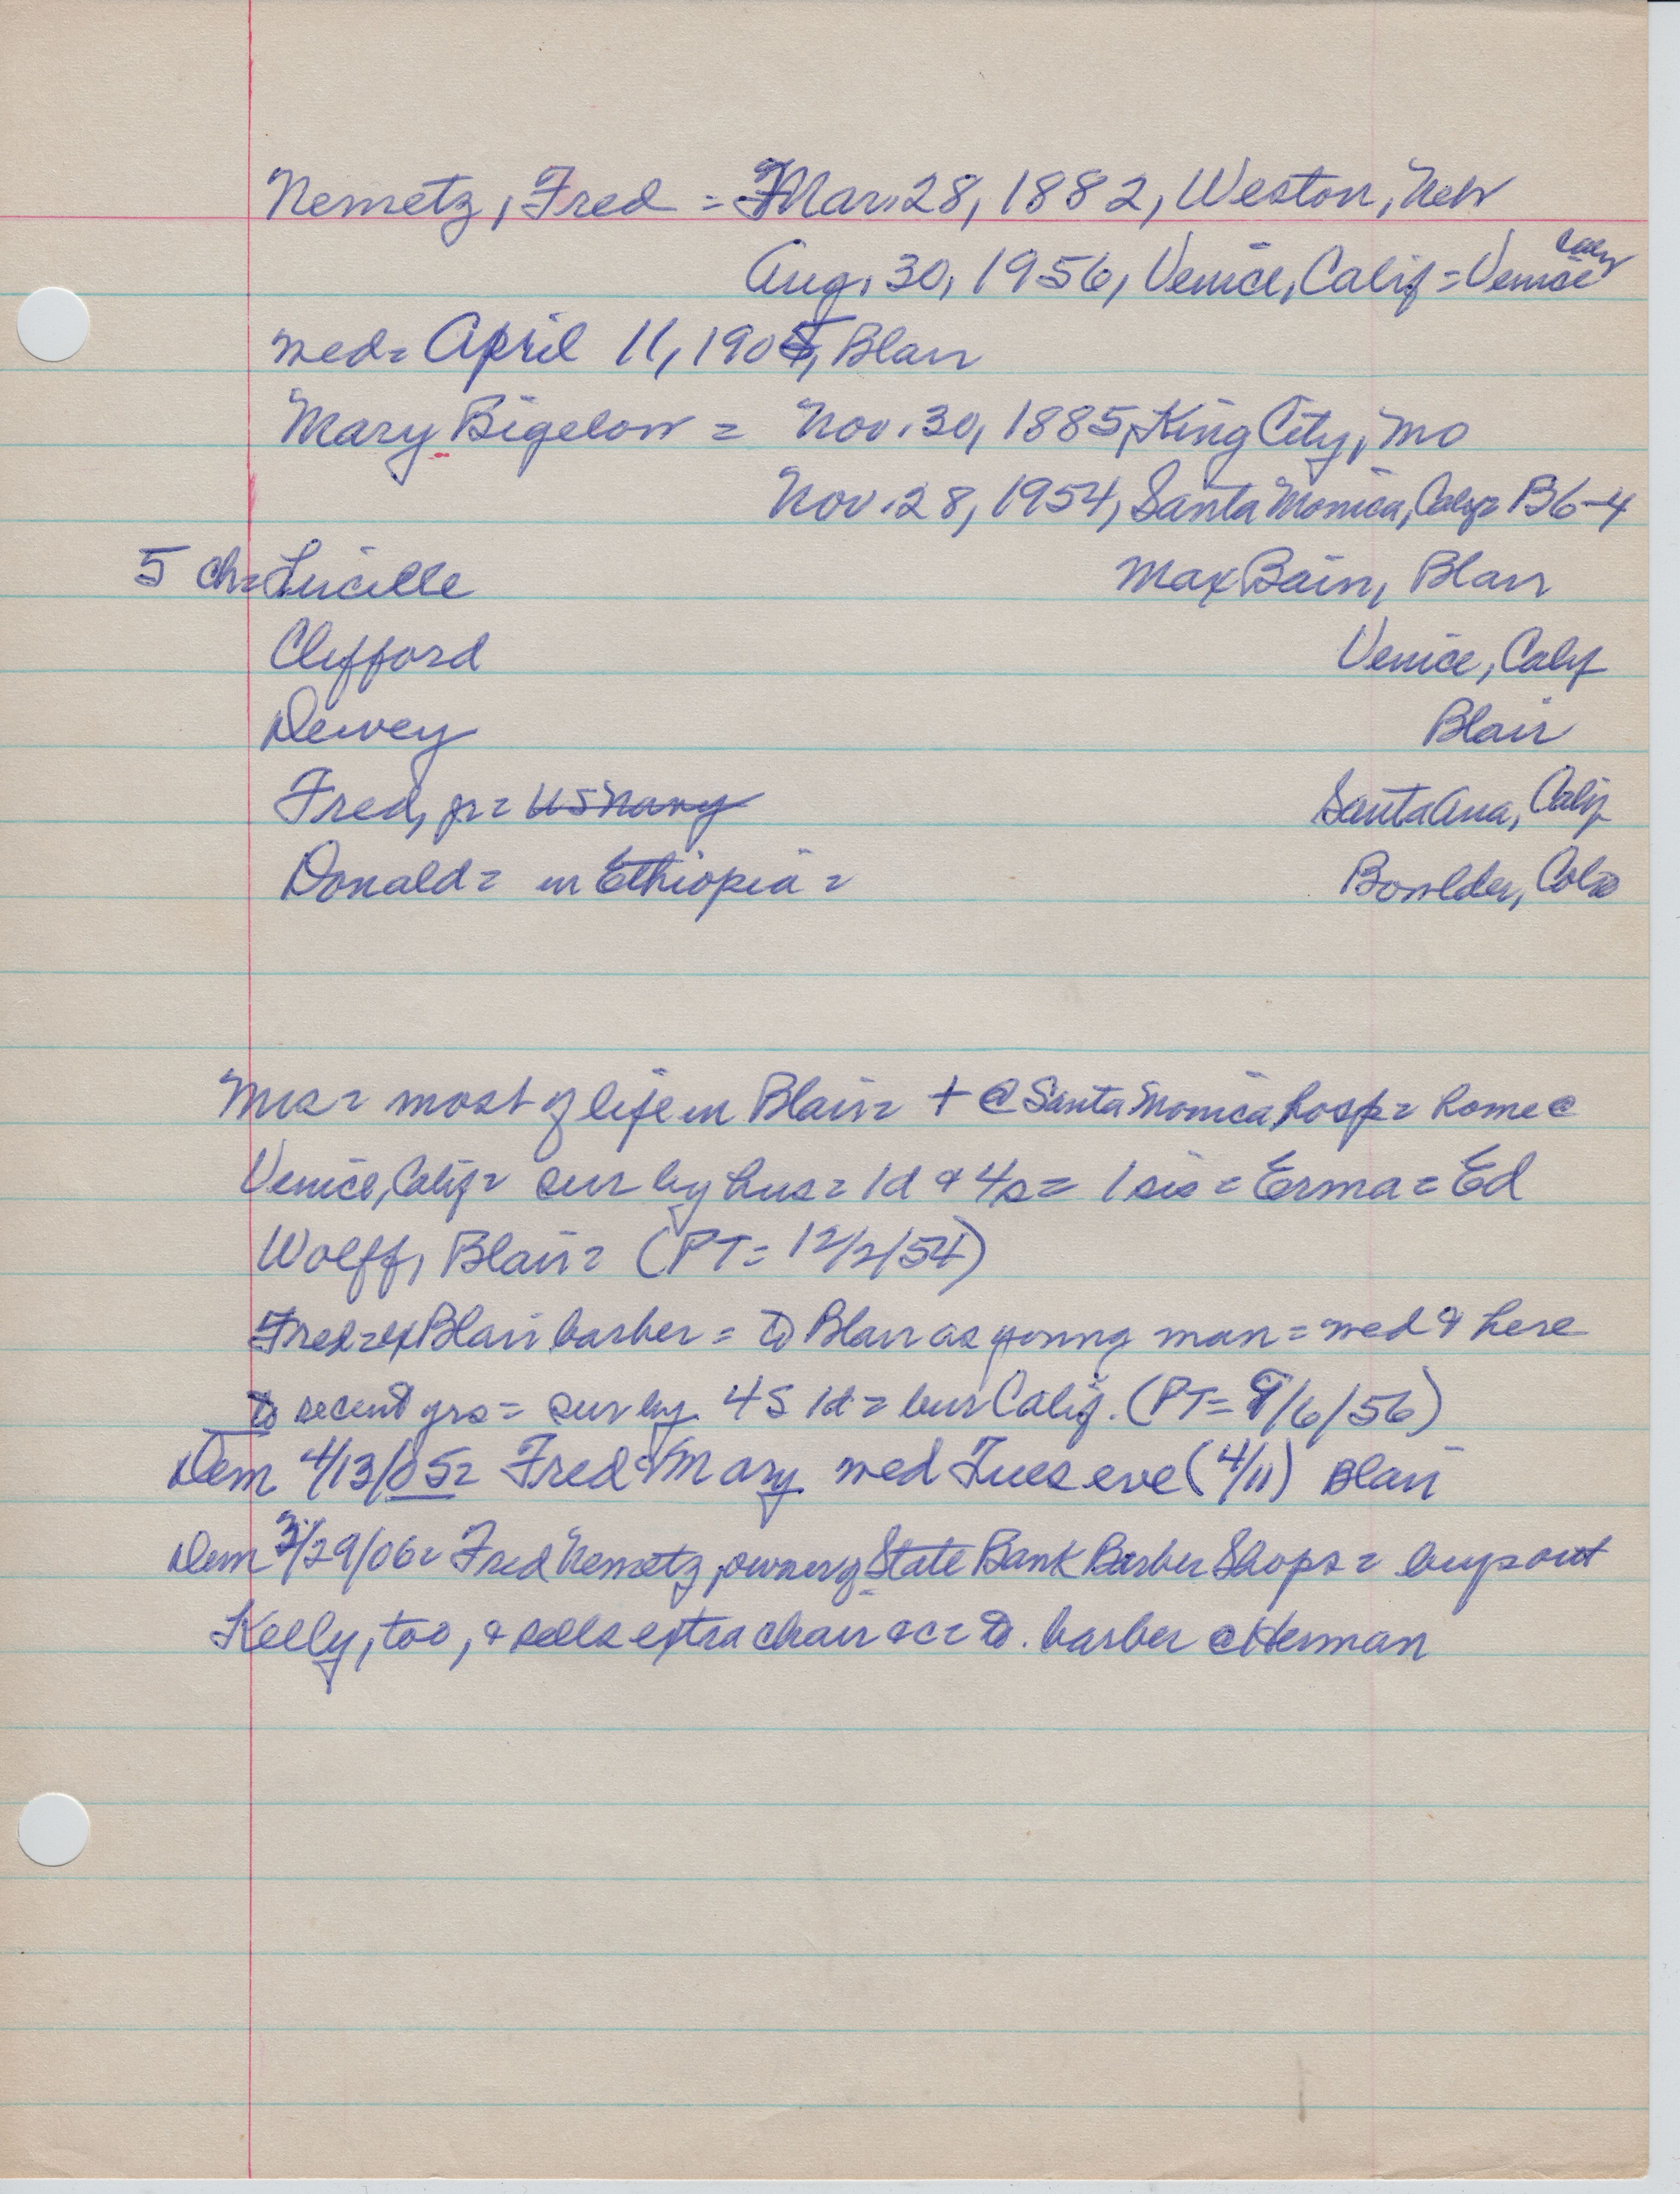 Nemetz, Fred = Mar. 28, 1882, Weston, Neb
Aug. 30, 1956, Venice, Calif = Venice Calif
wed = April 11, 1905, Blair
Mary Bigelow = Nov. 30, 1885, King City, Mo
Nov. 28, 1954, Santa Monica, Calif = B6-4
5 ch = Lucille Max Bain, Blair
Clifford Venice, Calif
Dewey Blair
Fred, jr = US Navy Santa Ana, Calif
Donald = in Ethiopia = Boulder, Colo
Mrs = most of life in Blair = + @ Santa Monica hosp = home @
Venice, Calif = sur by hus = 1d & 4s = 1 sis = Erma = Ed
Wolff, Blair = (PT = 12/2/54)
Fred = ex Blair barber = to Blair as young man = wed & here
to recent yrs = sur by 4S 1d = bur Calif. (PT = 9/6/56)
Dem 4/13/05 = Fred & Mary wed Tues eve (4/11) Blair
Dem 3/29/06 = Fred Nemetz, owner of State Bank Barber Shops = buys out
Kelly, too, & sells extra chair &c = to barber @ Herman